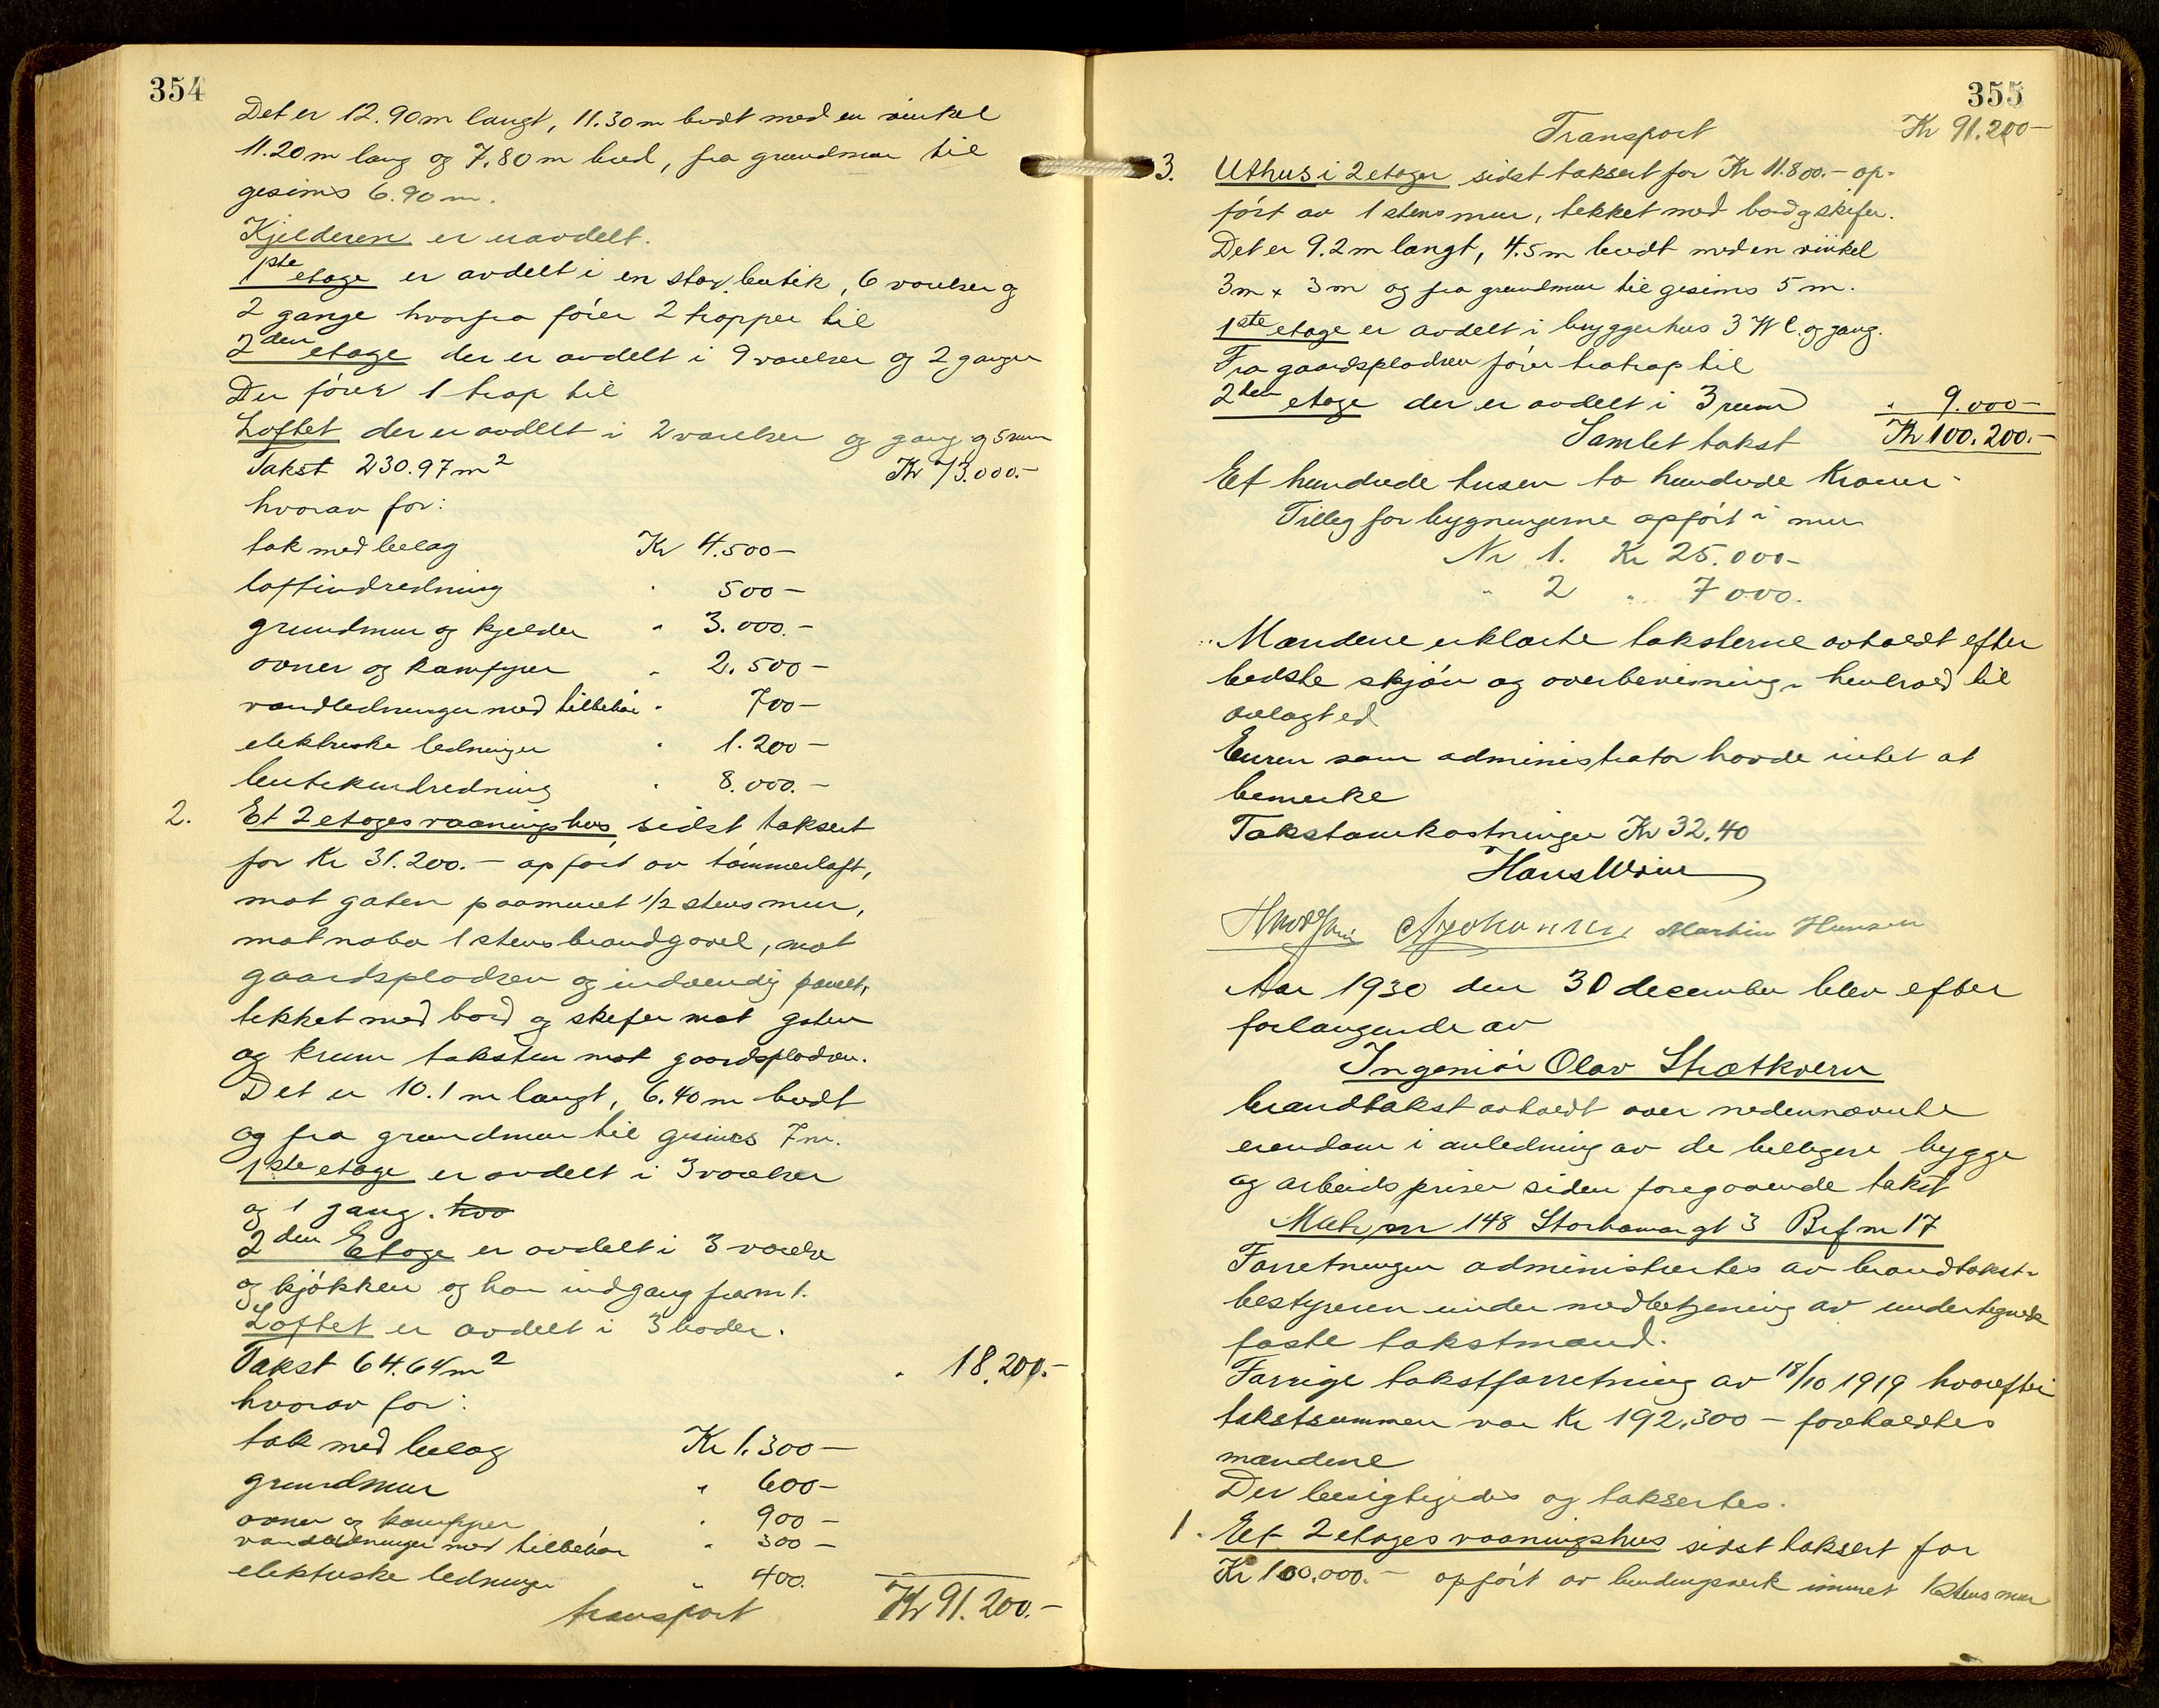 354
Det er 12.90 m langt, 11.30 m bredt med en vinkel
11.20 m lang og 7.80 m bred, fra grundmur til
gesims 6.90 m.
Kjelderen er uavdelt.
1ste etage er avdelt i en stor butik, 6 værelser og
2 gange hvorfra fører 2 trapper til
2den etage der er avdelt i 9 værelser og 2 ganger
Der fører 1 trap til
Loftet der er avdelt i 2 værelser og gang og 5 rum
Takst 230.97 m² Kr 73.000.-
hvorav for:
tak med belæg Kr 4.500-
loftindredning " 500-
grundmur og kjelder " 3.000.-
ovner og kamfyrer " 2.500-
vandledninger med tilbehør " 700-
elektriske ledninger " 1.200-
butikindredning " 8.000.-
2. Et 2 etages vaaningshus, sidst taksert
for Kr 31.200.- opført av tømmerlaft,
mot gaten paamuret 1/2 stens mur,
mot nabo 1 stens brandgavel, mot
gaardspladsen og indvendig panelt,
tekket med bord og skifer mot gaten
og krum taksten mot gaardspladsen.
Det er 10.1 m langt, 6.40 m bredt
og fra grundmur til gesims 7 m.
1ste etage er avdelt i 3 værelser
og 1 gang. hvo
2den Etage er avdelt i 3 værelse
og kjøkken og har indgang fra nr 1.
Loftet er avdelt i 3 boder.
Takst 64.64 m² " 18.200.-
hvorav for:
tak med belæg Kr 1.300-
grundmur " 600-
ovner og kamfyrer " 900-
vandledninger med tilbehør " 300-
elektriske ledninger " 400.
transport Kr 91.200.-
355
Transport Kr 91.200-
3. Uthus i 2 etager sidst taksert for Kr 11.800.- op-
ført av 1 stens mur, tekket med bord og skifer.
Det er 9.2 m langt, 4.5 m bredt med en vinkel
3 m x 3 m og fra grundmur til gesims 5 m.
1ste etage er avdelt i bryggerhus 3 W C. og gang.
Fra gaardspladsen fører tratrap til
2den etage der er avdelt i 3 rum " 9.000-
Samlet takst Kr 100.200.-
Et hundrede tusen to hundrede Kroner-
Tilleg for bygningerne opført i mur
Nr 1. Kr 25.000-
" 2 " 7000.
Mændene erklærte taksterne avholdt efter
bedste skjøn og overbevisning i henhold til
avlagt ed
Eieren som administrator havde intet at
bemerke
Takstomkostninger Kr 32.40
Martin Hansen
Aar 1930 den 30 december blev efter
forlangende av
Ingeniør Olav Strætkvern
brandtakst avholdt over nedennævnte
eiendom i anledning av de billigere bygge
og arbeidspriser siden foregaaende takst
Matr nr 148 Storhamargt 3 Brf nr 17
Forretningen administrertes av brandtakst-
bestyreren under medbetjening av undertegnede
faste takstmænd.
Forrige takstforretning av 18/10 1919 hvorefter
takstsummen var Kr 192,300- foreholdtes
mændene
Der besigtigedes og taksertes.
1. Et 2 etages vaaningshus sidst taksert for
Kr 100.000.- opført av bindingsverk immuret 1 stens mur